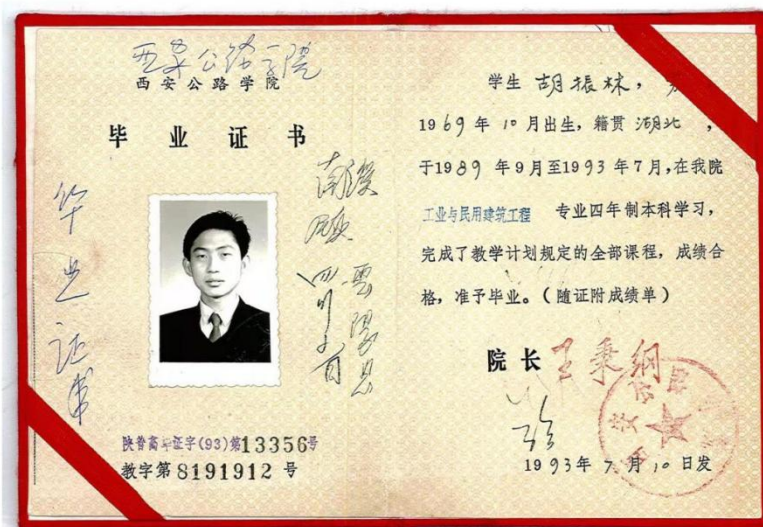 西安公路学院
西安公路学院
毕业证书
毕业证书
四川省
云阳县
陕普高毕证字(93)第13356号
教字第8191912号
学生 胡振林，
1969年10月出生，籍贯 湖北，
于1989年9月至1993年7月，在我院
工业与民用建筑工程 专业四年制本科学习，
完成了教学计划规定的全部课程，成绩合
格，准予毕业。（随证附成绩单）
院长 王秉纲
1993年7月10日发